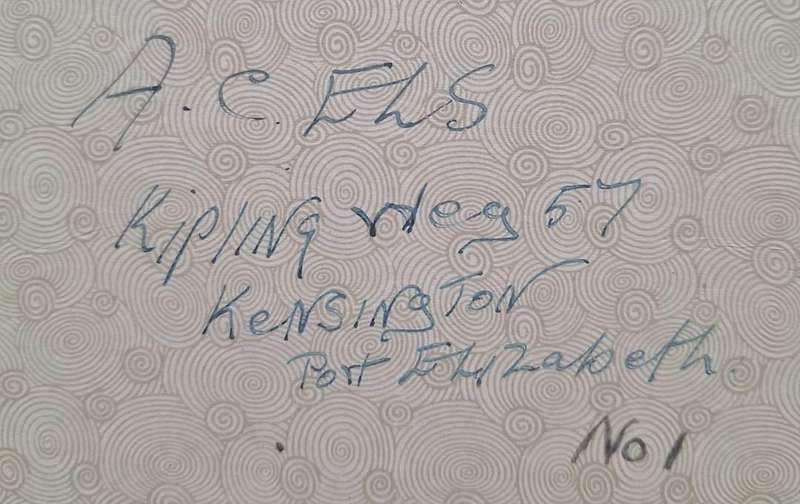 A. C. Els
Kipling Weg 57
Kensington
Port Elizabeth.
No 1